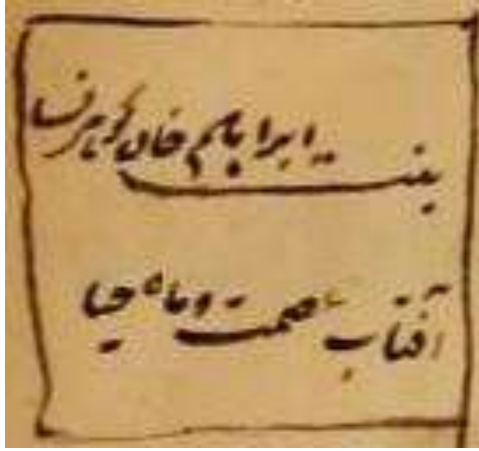 بنت ابراهیم خان گوهر نسا
آفتاب عصمت و ماه حیا